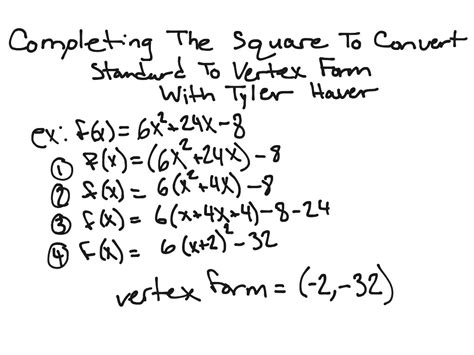 Completing The Square To Convert
Standard To Vertex Form
With Tyler Haver
ex: f(x) = 6x²+24x-8
① f(x) = (6x²+24x)-8
② f(x) = 6(x²+4x)-8
③ f(x) = 6(x+4x+4)-8-24
④ f(x) = 6(x+2)²-32
vertex form = (-2,-32)